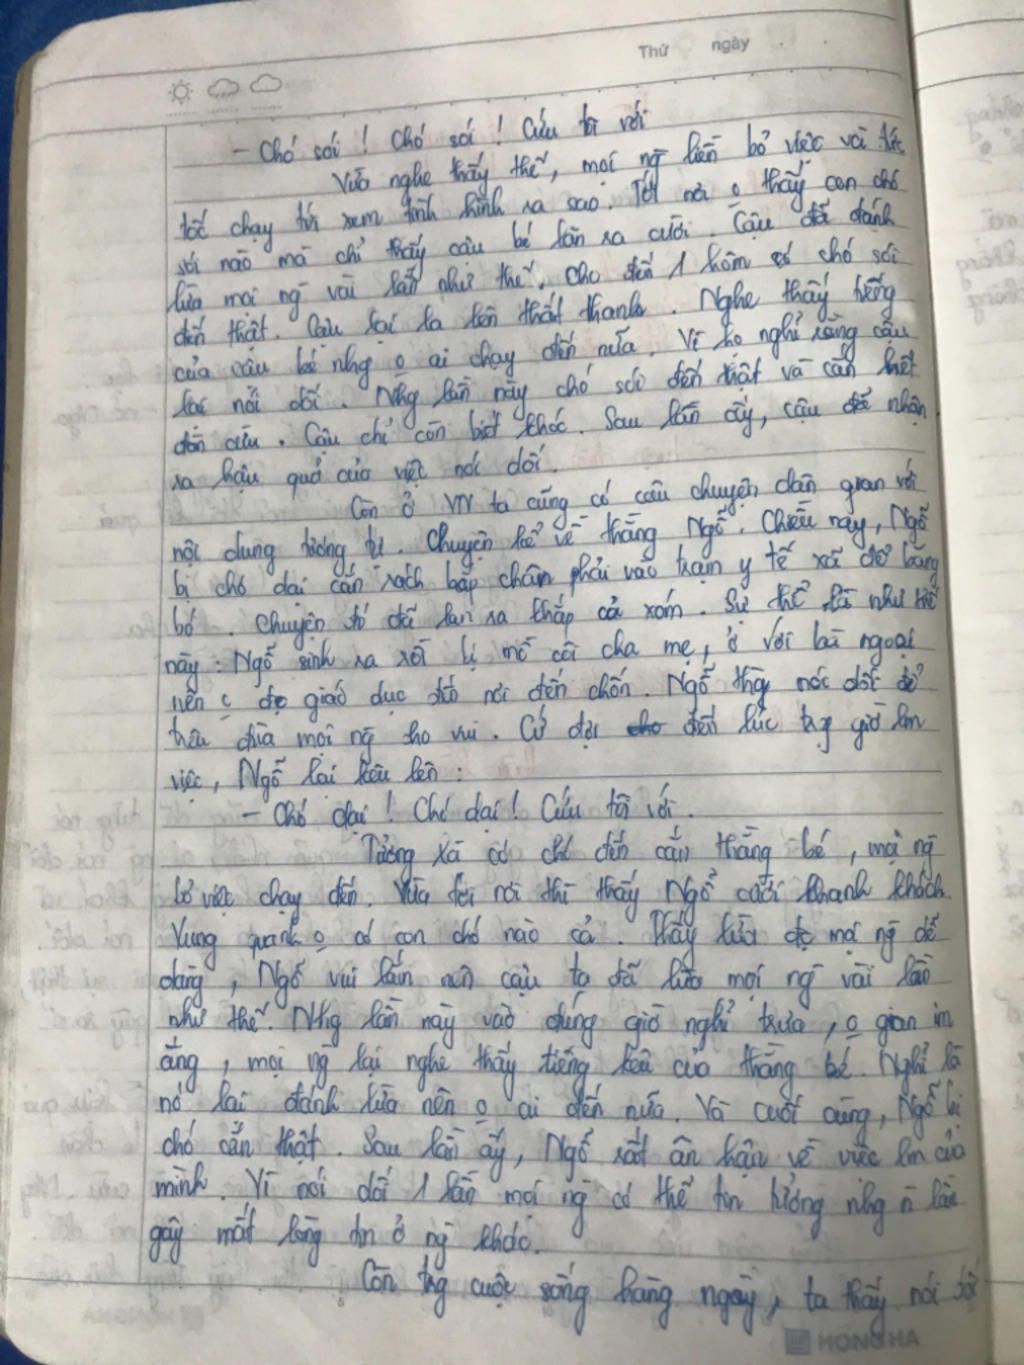 Thứ ngày
- Chó sói ! Chó sói ! Cứu tôi với
Vừa nghe thấy thế, mọi ng liền bỏ việc và tức
tốc chạy tới xem tình hình ra sao. Tới nơi o thấy con chó
sói nào mà chỉ thấy cậu bé lăn ra cười. Cậu đã đánh
lừa mọi ng vài lần như thế. Cho đến 1 hôm có chó sói
đến thật. Cậu lại la lên thất thanh. Nghe thấy tiếng
của cậu bé nhg o ai chạy đến nữa. Vì họ nghỉ rằng cậu
lại nói dối. Nhg lần này chó sói đến thật và cắn hết
đàn cừu. Cậu chỉ còn biết khóc. Sau lần ấy, cậu đã nhận
ra hậu quả của việc nói dối.
Còn ở VN ta cũng có câu chuyện dân gian với
nội dung tương tự. Chuyện kể về thằng Ngố. Chiều nay, Ngố
bị chó dại cắn rách bắp chân phải vào trạm y tế xã để băng
bó. Chuyện đó đã lan ra khắp cả xóm. Sự thể là như thế
này: Ngố sinh ra rồi bị mồ côi cha mẹ, ở với bà ngoại
nên o đc giáo dục đến nơi đến chốn. Ngố thg nói dối để
trêu đùa mọi ng cho vui. Cứ đợi đến lúc trg giờ lm
việc, Ngố lại kêu lên :
- Chó dại ! Chó dại ! Cứu tôi với.
Tưởng là có chó đến cắn thằng bé, mọi ng
bỏ việc chạy đến. Vừa tới nơi thì thấy Ngố cười khanh khách.
Xung quanh o có con chó nào cả. Thấy lừa đc mọi ng dễ
dàng, Ngố vui lắm nên cậu ta đã lừa mọi ng vài lần
như thế. Nhg lần này vào đúng giờ nghỉ trưa, o gian im
ắng, mọi ng lại nghe thấy tiếng kêu của thằng bé. Nghỉ là
nó lại đánh lừa nên o ai đến nữa. Và cuối cùng, Ngố bị
chó cắn thật. Sau lần ấy, Ngố rất ân hận về việc lm của
mình. Vì nói dối 1 lần mọi ng có thể tin tưởng nhg n lần
gây mất lòng tin ở ng khác.
Còn trg cuộc sống hàng ngày, ta thấy nói dối
HONG HA